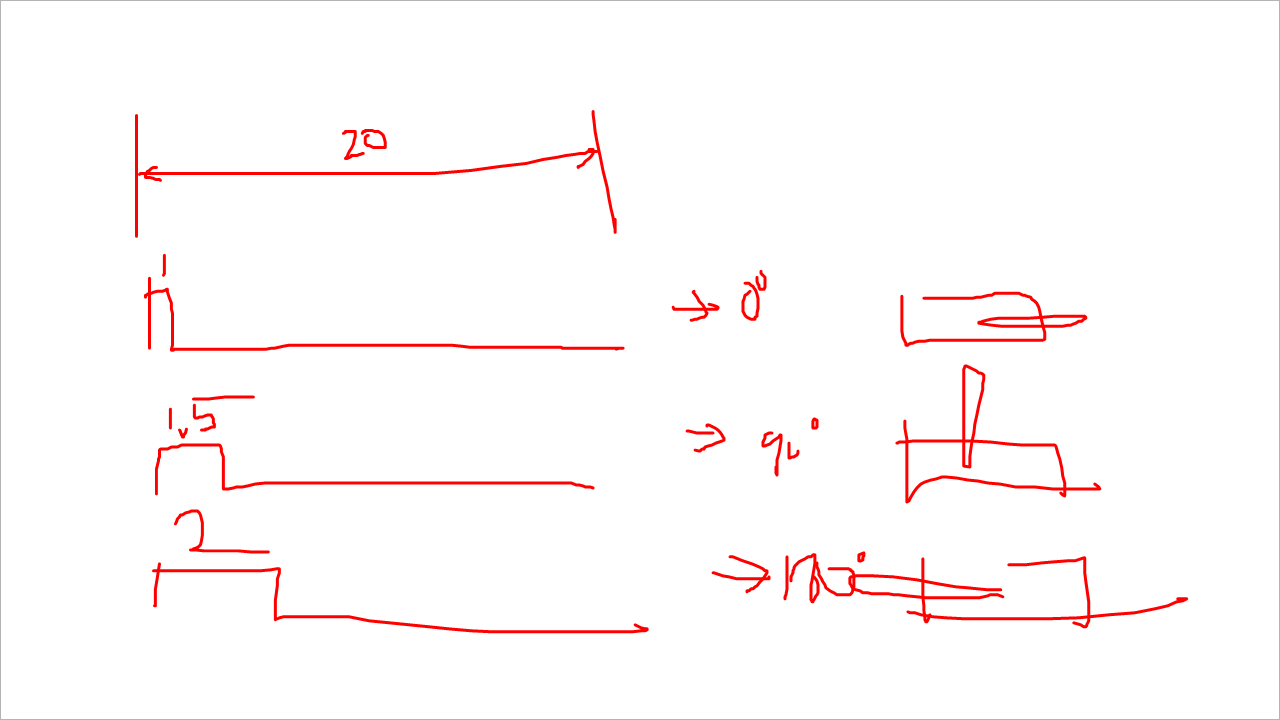 20
1
→ 0°
1.5
→ 90°
2
→ 180°